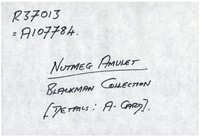 R37013
= A107784.
NUTMEG AMULET
BLACKMAN COLLECTION
[DETAILS: A-CARD].